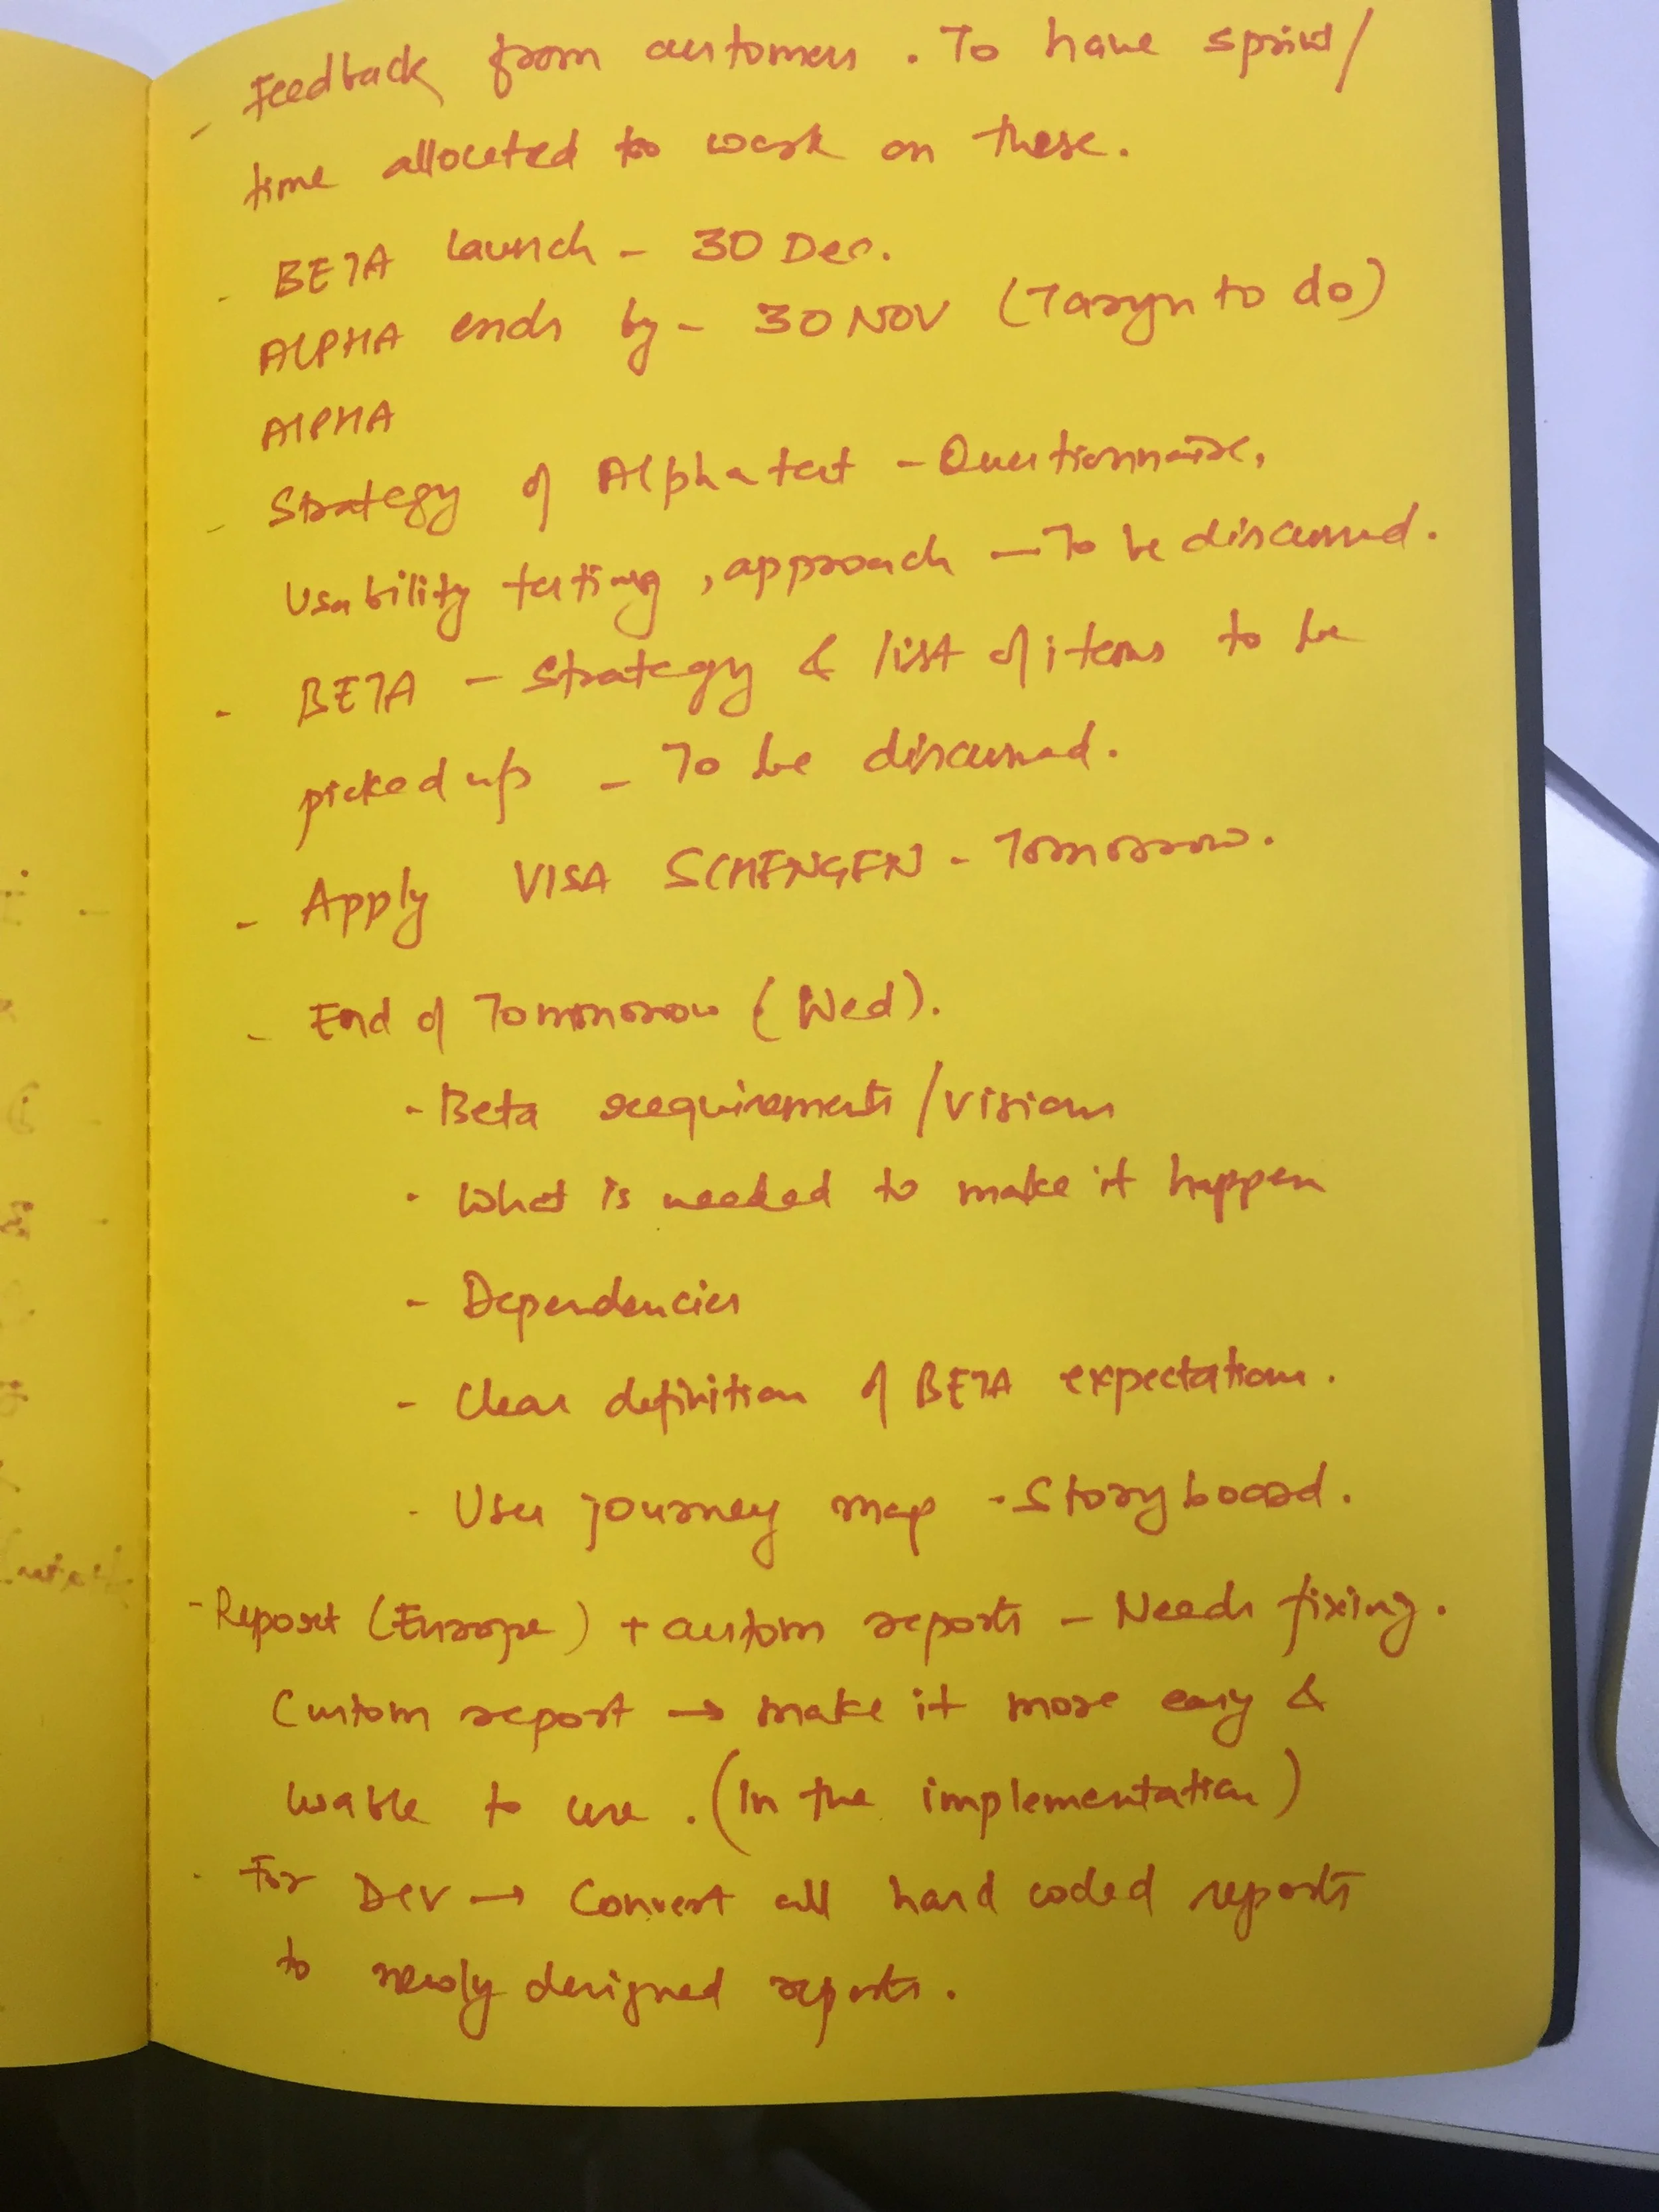 - Feedback from customers. To have sprint/
time allocated to work on these.
- BETA Launch - 30 Dec.
ALPHA ends by - 30 NOV (Taryn to do)
ALPHA
- Strategy of Alpha test - Questionnaire,
Usability testing, approach - To be discussed.
- BETA - Strategy & list of items to be
picked up - To be discussed.
- Apply VISA SCHENGEN - Tomorrow.
- End of Tommorrow (Wed).
- Beta requirements/visions
- What is needed to make it happen
- Dependencies
- Clear definition of BETA expectations.
- User journey map - Storyboard.
- Report (Europe) + custom reports - Needs fixing.
Custom report → make it more easy &
usable to use. (In the implementation)
- For Dev → Convert all hard coded reports
to newly designed reports.